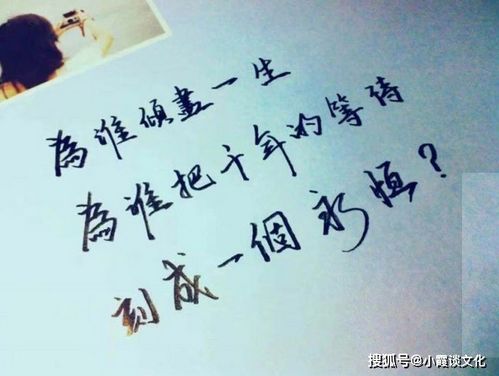 為誰傾盡一生
為誰把千年的等待
刻成一個永恒？
搜狐号@小霞谈文化